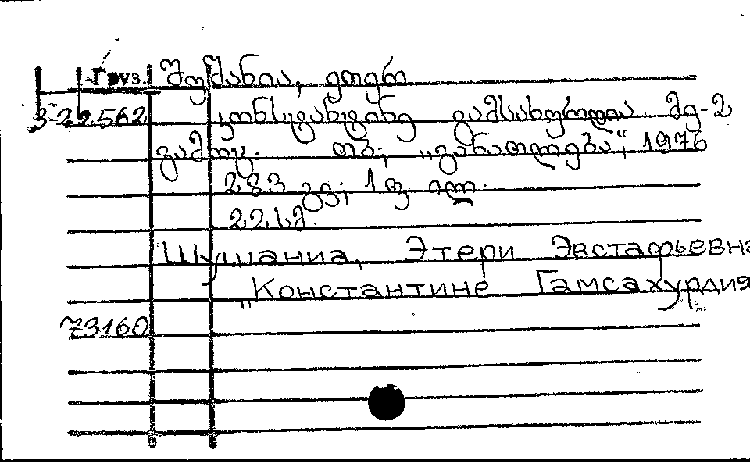 Груз. შუშანია, ეთერ
3-22.562 კონსტანტინე გამსახურდია მე-2
გამოც. თბ., „განათლება“, 1976
283 გვ; 1 ფ ილ.
22 სმ.
Шушаниа, Этери Эвстафьевна
„Константине Гамсахурдиа
73160